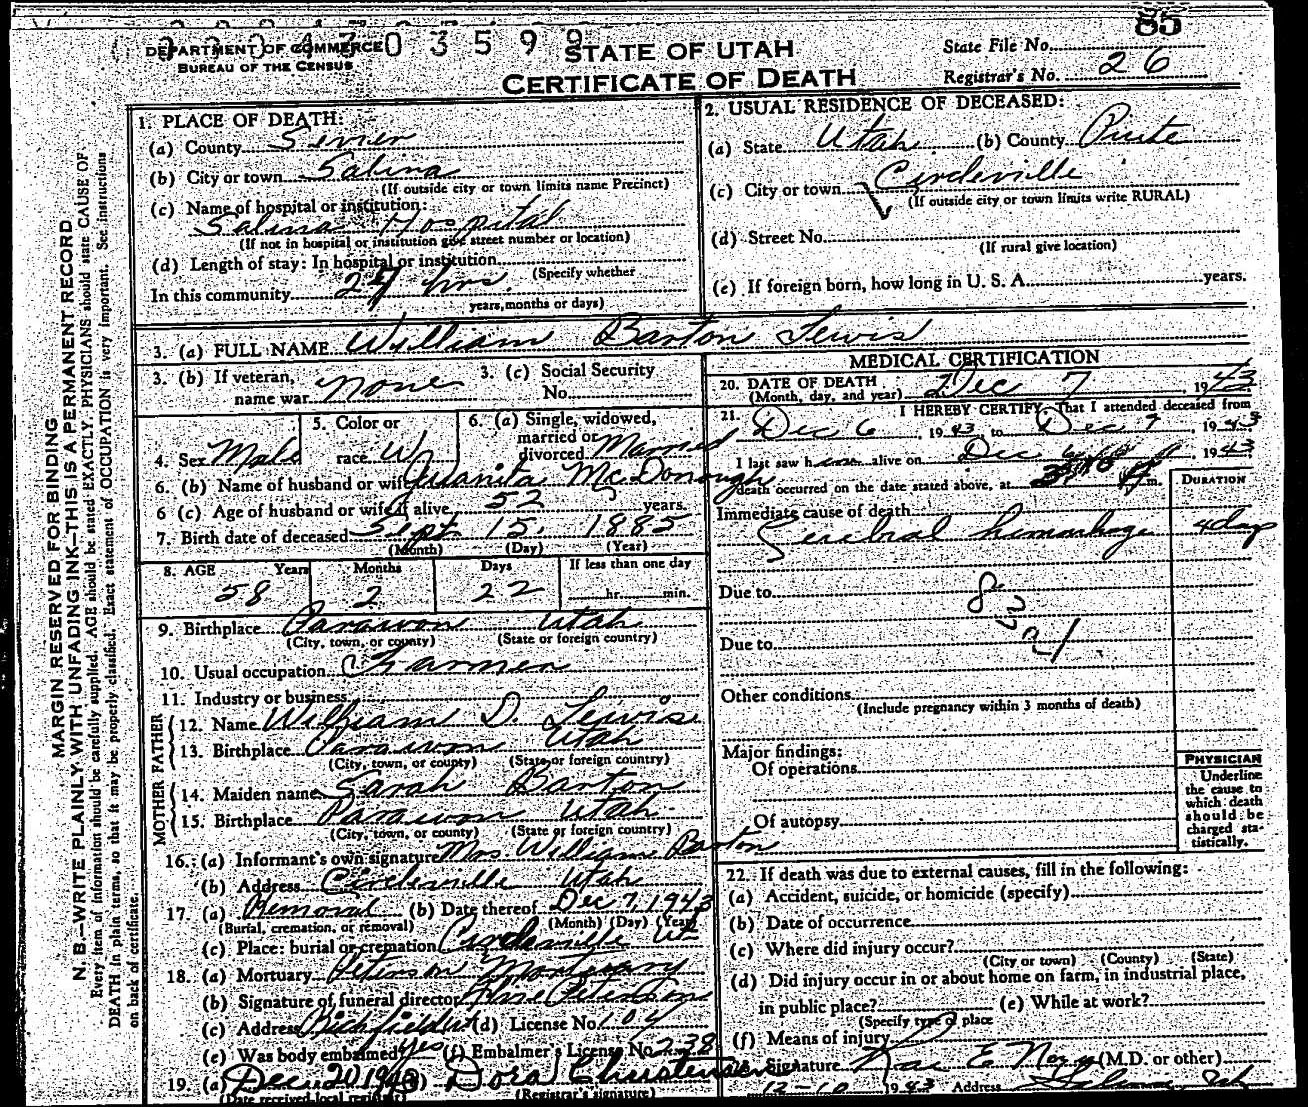 85
DEPARTMENT OF COMMERCE
BUREAU OF THE CENSUS
0 3 5 9 9
STATE OF UTAH
CERTIFICATE OF DEATH
State File No.
Registrar's No. 26
MARGIN RESERVED FOR BINDING
N. B.—WRITE PLAINLY, WITH UNFADING INK—THIS IS A PERMANENT RECORD
Every item of information should be carefully supplied. AGE should be stated EXACTLY. PHYSICIANS should state CAUSE OF
DEATH in plain terms, so that it may be properly classified. Exact statement of OCCUPATION is very important. See instructions
on back of certificate.
1. PLACE OF DEATH:
(a) County Sevier
(b) City or town Salina
(If outside city or town limits name Precinct)
(c) Name of hospital or institution:
Salina Hospital
(If not in hospital or institution give street number or location)
(d) Length of stay: In hospital or institution
(Specify whether
In this community 24 hrs.
years, months or days)
2. USUAL RESIDENCE OF DECEASED:
(a) State Utah (b) County Piute
(c) City or town Circleville
(If outside city or town limits write RURAL)
(d) Street No.
(If rural give location)
(e) If foreign born, how long in U. S. A. years.
3. (a) FULL NAME William Barton Lewis
3. (b) If veteran, name war none
3. (c) Social Security No.
4. Sex Male
5. Color or race W
6. (a) Single, widowed, married or divorced Married
6. (b) Name of husband or wife Juanita McDonough
6 (c) Age of husband or wife if alive 52 years.
7. Birth date of deceased Sept 15, 1885
(Month) (Day) (Year)
8. AGE Years Months Days If less than one day
58 2 22 hr. min.
9. Birthplace Parowan Utah
(City, town, or county) (State or foreign country)
10. Usual occupation Farmer
11. Industry or business
FATHER
12. Name William D. Lewis
13. Birthplace Parowan Utah
(City, town, or county) (State or foreign country)
MOTHER
14. Maiden name Sarah Barton
15. Birthplace Parowan Utah
(City, town, or county) (State or foreign country)
16. (a) Informant's own signature Mrs. William Barton
(b) Address Circleville Utah
17. (a) Removal (b) Date thereof Dec 7, 1943
(Burial, cremation, or removal) (Month) (Day) (Year)
(c) Place: burial or cremation Circleville Ut
18. (a) Mortuary Peterson Mortuary
(b) Signature of funeral director Peterson
(c) Address Richfield Ut (d) License No. 104
(e) Was body embalmed? yes (f) Embalmer's License No. 238
19. (a) Dec 20 1943 (b) Dora Christensen
(Date received local registrar) (Registrar's signature)
MEDICAL CERTIFICATION
20. DATE OF DEATH Dec 7, 1943
(Month, day, and year)
21. I HEREBY CERTIFY, That I attended deceased from
Dec 6, 1943 to Dec 7, 1943
I last saw him alive on Dec 6, 1943
death occurred on the date stated above, at m.
DURATION
Immediate cause of death
Cerebral hemorrhage 4 days
Due to
83
Due to
Other conditions
(Include pregnancy within 3 months of death)
Major findings:
Of operations
Of autopsy
PHYSICIAN
Underline
the cause to
which death
should be
charged sta-
tistically.
22. If death was due to external causes, fill in the following:
(a) Accident, suicide, or homicide (specify)
(b) Date of occurrence
(c) Where did injury occur?
(City or town) (County) (State)
(d) Did injury occur in or about home on farm, in industrial place,
in public place? (e) While at work?
(Specify type of place
(f) Means of injury
Signature Rae E Noyes (M.D. or other)
12-10 1943 Address Salina, Ut